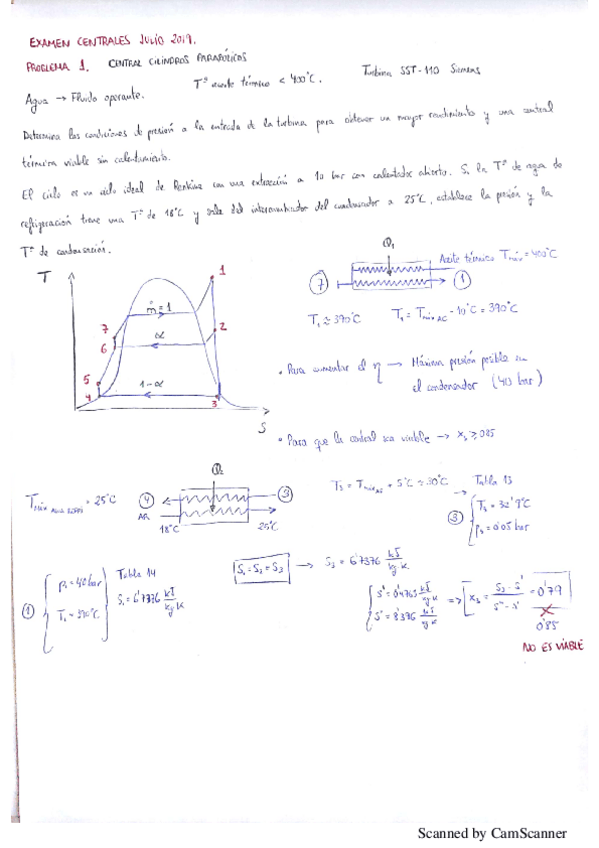 EXAMEN CENTRALES JULIO 2019.
PROBLEMA 1. CENTRAL CILINDROS PARABÓLICOS
Agua → Fluido operante. Tª aceite térmico < 400°C. Turbina SST-110 Siemens
Determina las condiciones de presión a la entrada de la turbina para obtener un mayor rendimiento y una central
térmica viable sin calentamiento.
El ciclo es un ciclo ideal de Rankine con una extracción a 10 bar con calentador abierto. Si la Tª de agua de
refrigeración tiene una Tª de 18°C y sale del intercambiador del condensador a 25°C, establece la presión y la
Tª de condensación.
T
1
ṁ=1
7
6
α
2
5
4
1-α
3
S
Q1
Aceite térmico Tmáx = 400°C
7
1
T1 ≈ 390°C T1 = Tmáx AC - 10°C = 390°C
• Para aumentar el η → Máxima presión posible en
el condensador (40 bar)
• Para que la central sea viable → x3 ≥ 0'85
Q2
4
3
AR
18°C
25°C
= 25°C
+ 5°C ≈ 30°C → Tabla 13
3
T3 = 32'9°C
p3 = 0'05 bar
1
Tabla 14
T1 = 390°C
S1 = 6'7376 kJ/kg·K
S1 = S2 = S3 → S3 = 6'7376 kJ/kg·K
S' = 0'4763 kJ/kg·K
kJ/kg·K
⇒ x3 = S3 - S' / S'' - S' = 0'79
0'85
NO ES VIABLE
Scanned by CamScanner